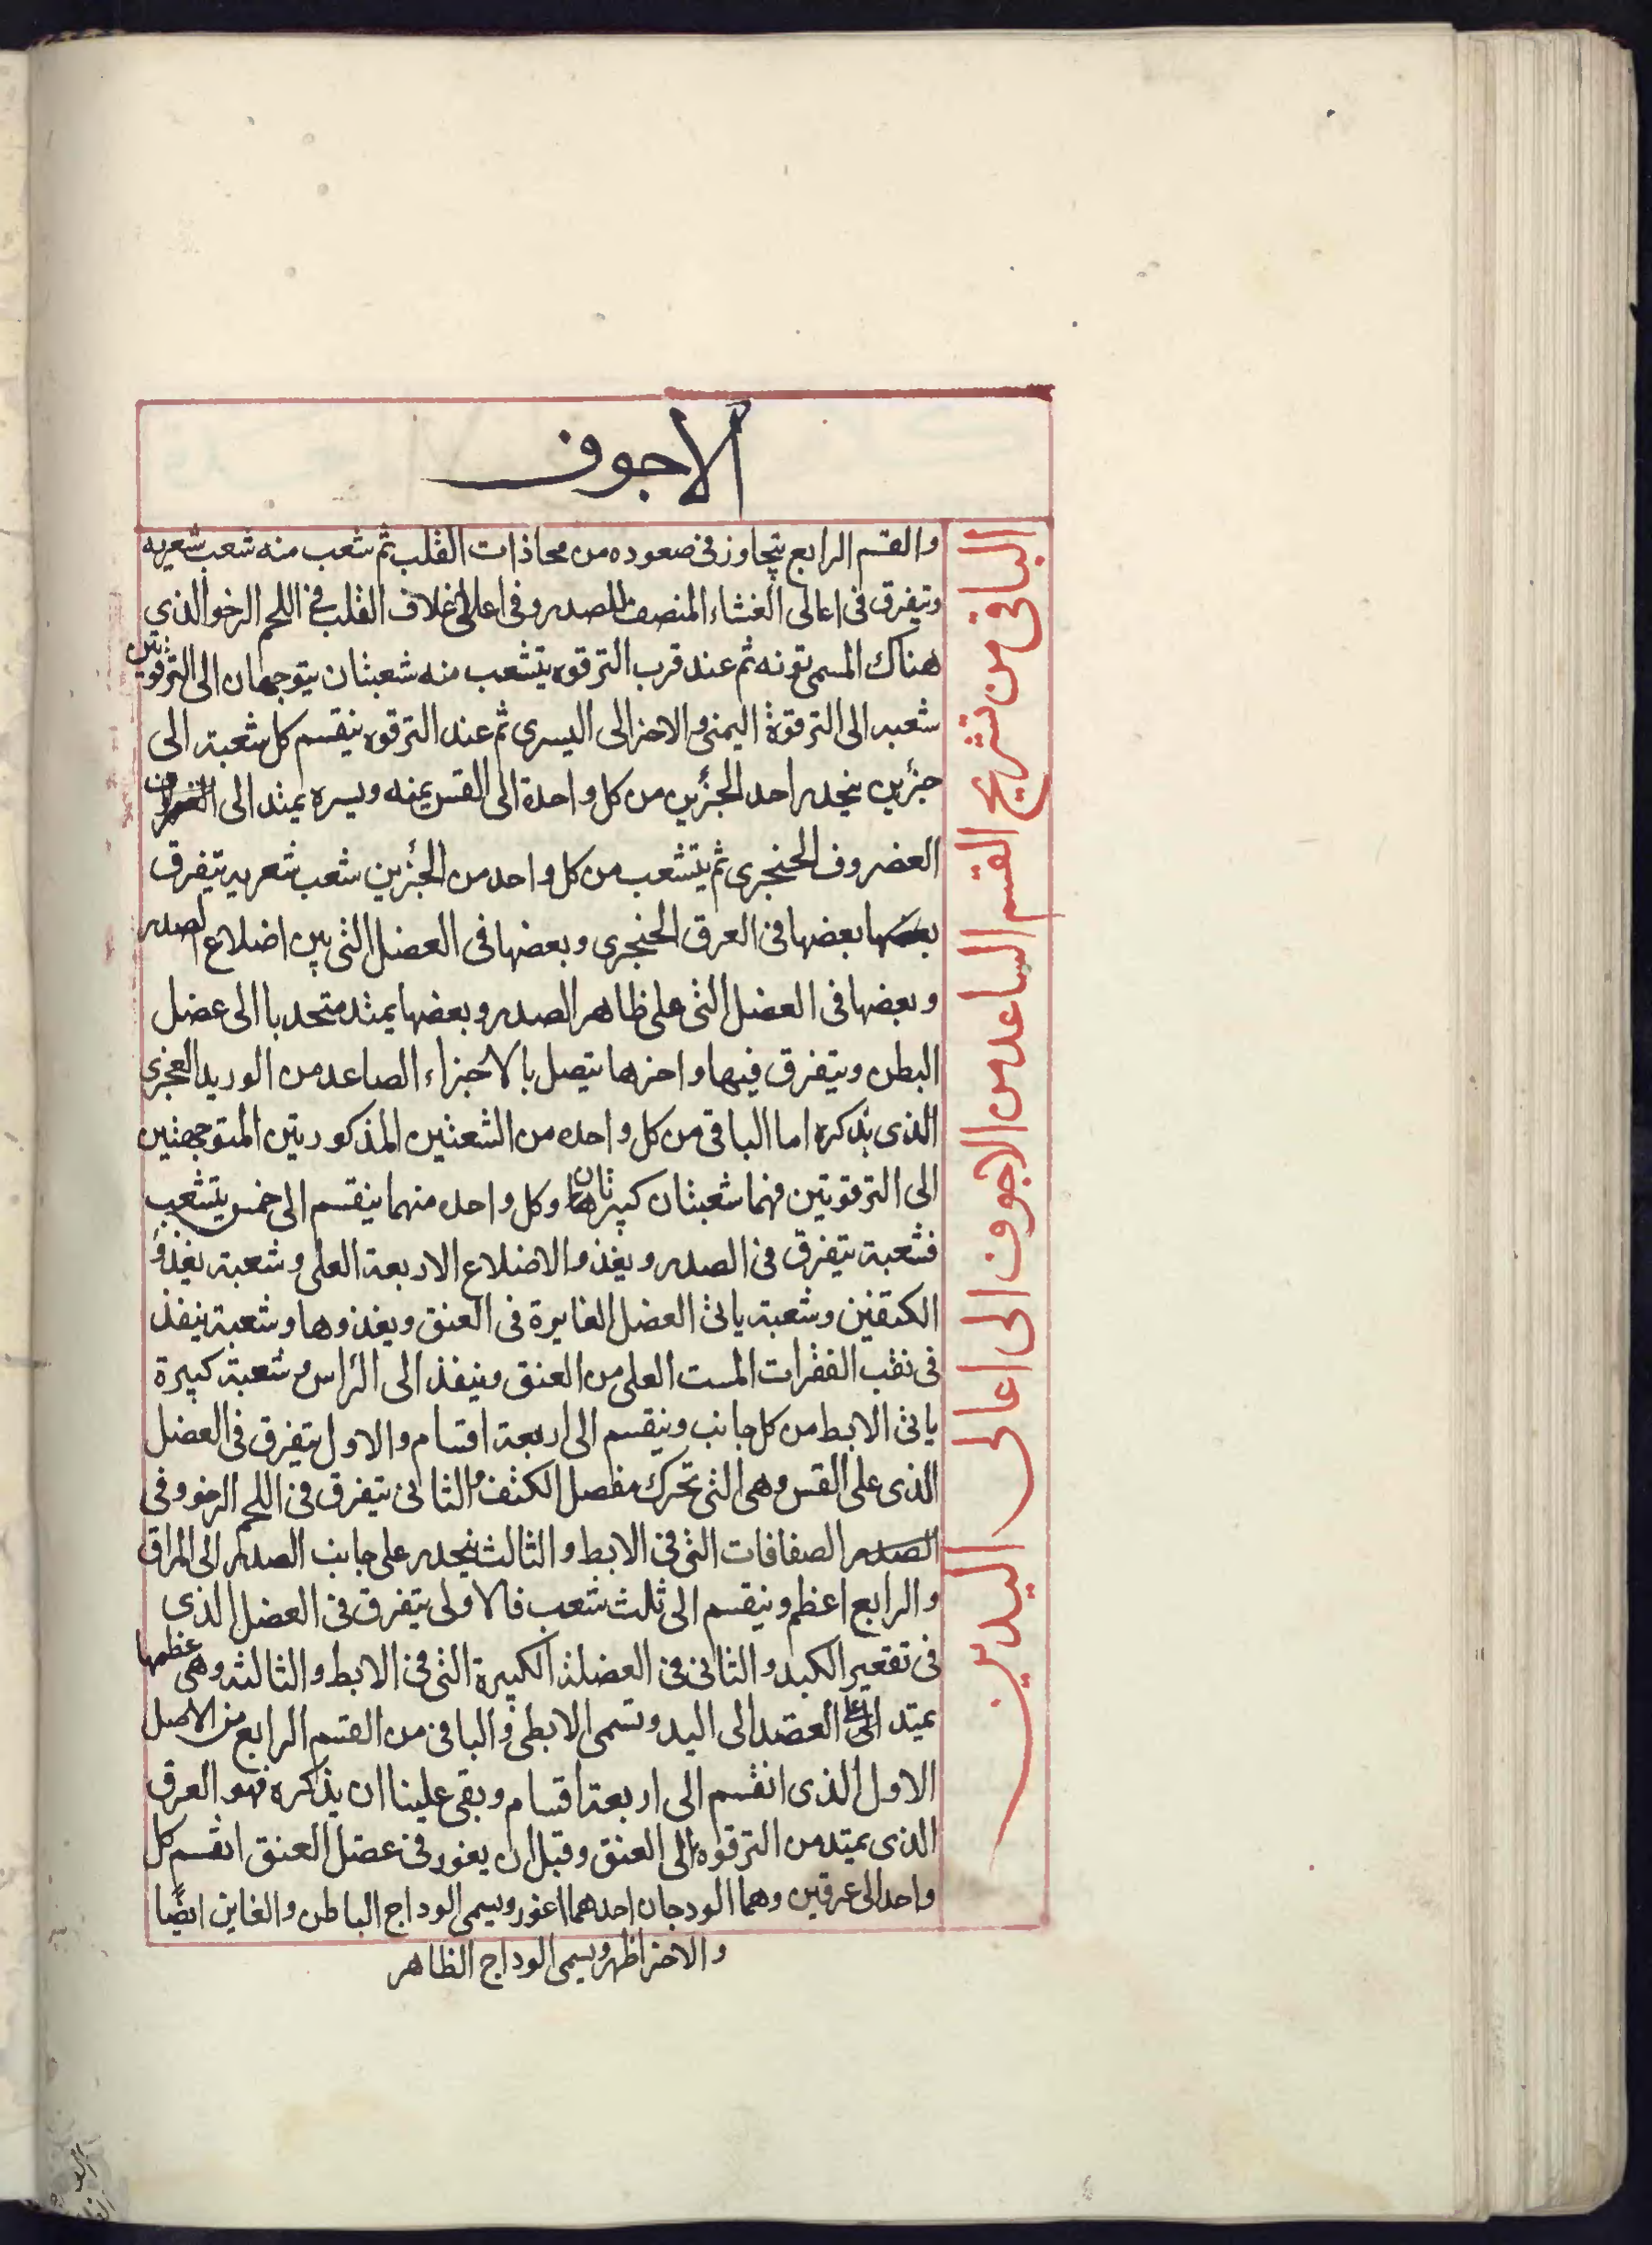 الاجوف
الباقى من تشريح القسم الساعد من الاجوف الى اعالى اليدين
والقسم الرابع يتجاوز فى صعوده من محاذات القلب ثم شعب منه شعب شعريه
وتيفرق فى اعالى الغشاء المنصف للصدر وفى اعالى غلاف القلب فى اللحم الرخو الذى
هناك المسمى توثه ثم عند قرب الترقوه يتشعب منه شعبتان يتوجهان الى الترقوتين
شعبه الى الترقوة اليمنى والاخر الى اليسرى ثم عند الترقوه ينقسم كل شعبة الى
جزئين ينحدر احد الجزئين من كل واحدة الى القس يمنه ويسره يمتد الى
الغضروف الحنجرى ثم يتشعب من كل واحد من الجزئين شعب شعريه يتفرق
بعضها فى العرق الحنجرى وبعضها فى العضل التى بين اضلاع الصدر
وبعضها فى العضل التى على ظاهر الصدر وبعضها يمتد متحدبا الى عضل
البطن ويتفرق فيها واخرها يتصل بالاجزاء الصاعد من الوريد العجزى
الذى نذكره اما الباقى من كل واحده من الشعبتين المذكورتين المتوجهتين
الى الترقوتين فهما شعبتان كبيرتان وكل واحده منهما ينقسم الى خمس يتشعب
فشعبة يتفرق فى الصدر ويغذوالاضلاع الاربعة العلى وشعبة يغذو
الكتفين وشعبة ياتى العضل الغايرة فى العنق ويغذوها وشعبة ينفذ
فى نقب الفقرات الست العلى من العنق وينفذ الى الراس وشعبة كبيرة
ياتى الابط من كل جانب وينقسم الى اربعة اقسام والاول يتفرق فى العضل
الذى على القس وهى التى تحرك مفصل الكتف والثانى يتفرق فى اللحم الرخو وفى
الصدر الصفاقات التى فى الابط والثالث ينحدر على جانب الصدر الى المراق
والرابع اعظم وينقسم الى ثلث شعب فالاولى يتفرق فى العضل الذى
فى تقعير الكبد والثانى فى العضلة الكبيرة التى فى الابط والثالثه وهى عظمها
يمتد على العضد الى اليد وتسمى الابطى والباقى من القسم الرابع من الاصل
الاول الذى انقسم الى اربعة اقسام وبقى علينا ان يذكره فهو العرق
الذى يمتد من الترقوه الى العنق وقبل ان يغور فى عضل العنق انقسم كل
واحد الى عرقين وهما الودجان احدهما اغور ويسمى الوداج الباطن والغاير ايضًا
والاخر اظهر ويسمى الوداج الظاهر